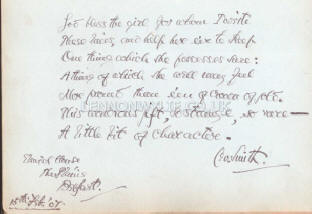 God bless the girl for whom I write
These lines, and help her ere to keep
One thing which she possesses here:
A thing of which she well may feel
More proud than even of crown of
This wondrous gift, so strange, so rare—
A little bit of character.
Leo Smith.
House
The
Belfast.
15th Feb. '07
LENNONWYLIE.CO.UK